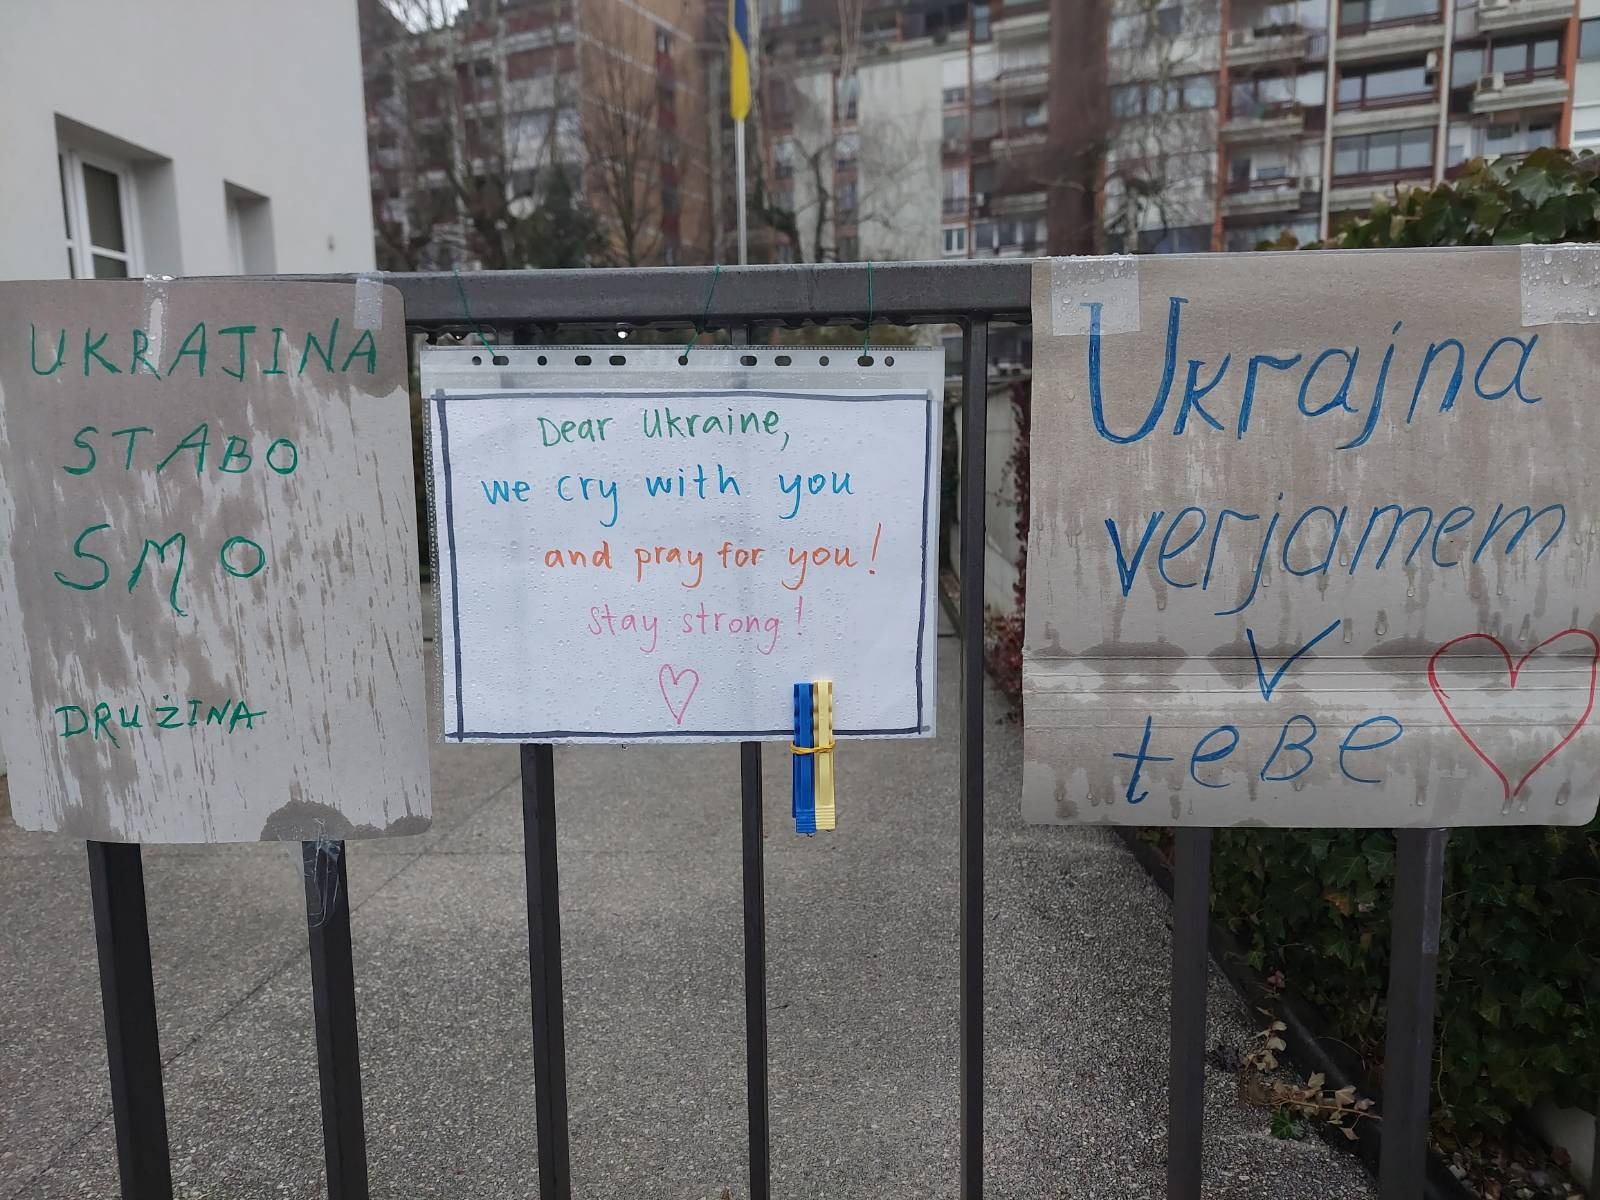 UKRAJINA
STABO
SMO
DRUŽINA
Dear Ukraine,
we cry with you
and pray for you!
Stay strong!
Ukrajna
verjamem
v
tebe